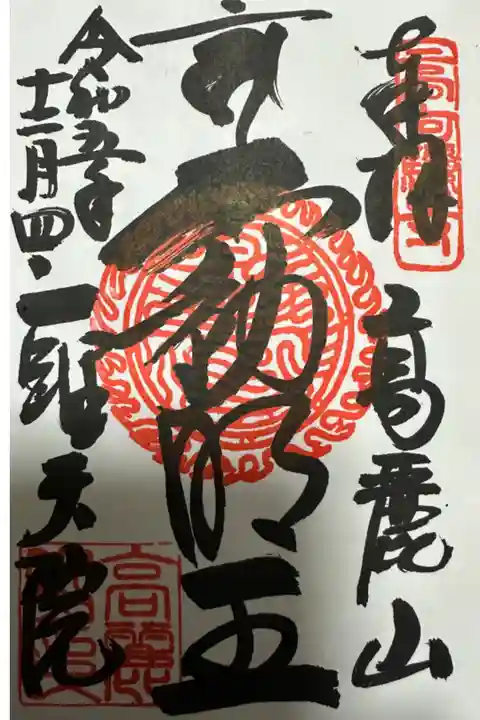 奉拝
高麗山
不動明王
令和五年
十二月四日
聖天院
高麗山